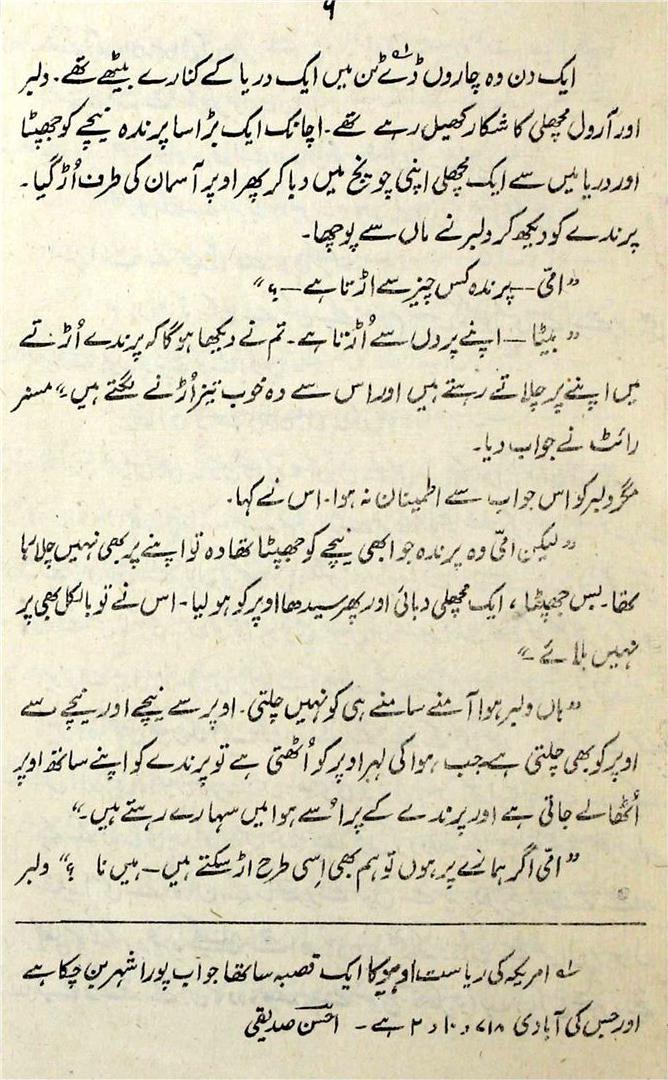 ۹
ایک دن وہ چاروں ڈے ٹن میں ایک دریا کے کنارے بیٹھے تھے۔ ولبر
اور آرول مچھلی کا شکار کھیل رہے تھے۔ اچانک ایک بڑا سا پرندہ نیچے کو جھپٹا
اور دریا میں سے ایک مچھلی اپنی چونچ میں دبا کر پھر اوپر آسمان کی طرف اُڑ گیا۔
پرندے کو دیکھ کر ولبر نے ماں سے پوچھا۔
”امّی — پرندہ کس چیز سے اڑتا ہے — ؟“
”بیٹا — اپنے پروں سے اُڑتا ہے۔ تم نے دیکھا ہوگا کہ پرندے اُڑتے
میں اپنے پر چلاتے رہتے ہیں اور اس سے وہ خوب تیز اُڑنے لگتے ہیں۔“ مسنر
رائٹ نے جواب دیا۔
مگر ولبر کو اس جواب سے اطمینان نہ ہوا۔ اس نے کہا۔
”لیکن امّی وہ پرندہ جو ابھی نیچے کو جھپٹا تھا وہ تو اپنے پر بھی نہیں چلا رہا
تھا۔ بس جھپٹا، ایک مچھلی دبائی اور پھر سیدھا اوپر کو ہو لیا۔ اس نے تو بالکل بھی پر
نہیں ہلائے۔“
”ہاں ولبر ہوا آمنے سامنے ہی کو نہیں چلتی۔ اوپر سے نیچے اور نیچے سے
اوپر کو بھی چلتی ہے جب ہوا کی لہر اوپر کو اُٹھتی ہے تو پرندے کو اپنے ساتھ اوپر
اُٹھا لے جاتی ہے اور پرندے کے پر اُسے ہوا میں سہارے رہتے ہیں۔“
”امّی اگر ہمارے پر ہوں تو ہم بھی اِسی طرح اڑ سکتے ہیں — ہیں نا ؟“ ولبر
؎۱ امریکہ کی ریاست اوہیو کا ایک قصبہ سا تھا جو اب پورا شہر بن چکا ہے
اور جس کی آبادی ۷۱۸ر۱۰ر۲ ہے۔ احسن صدیقی